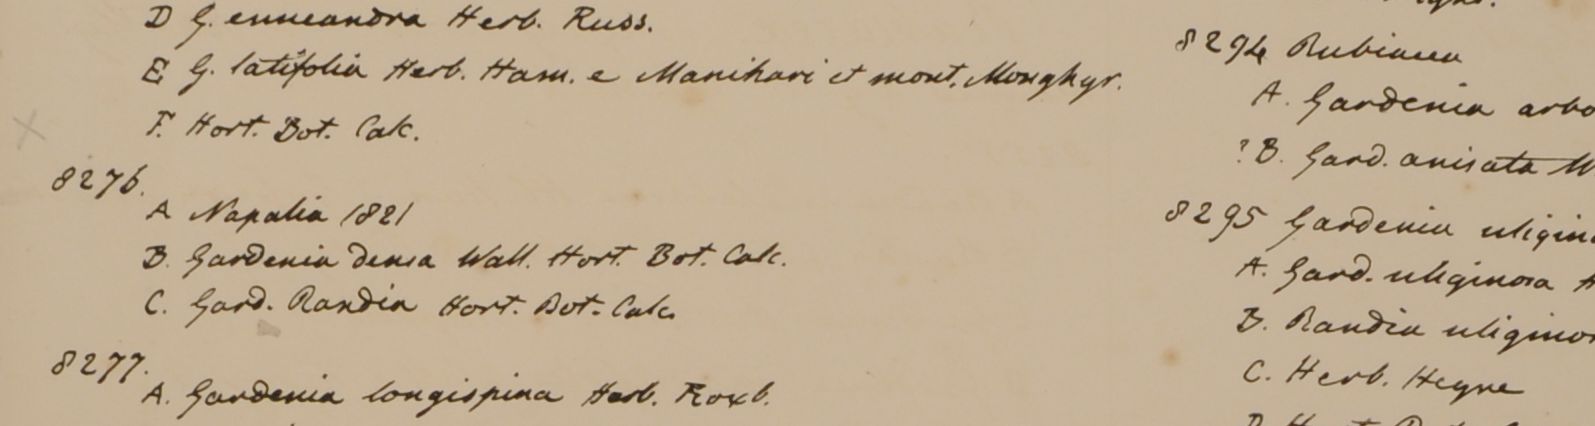 D G. enneandra Herb. Russ.
E G. latifolia Herb. Ham. e Manihari et mont. Monghyr.
F. Hort. Bot. Calc.
8276.
A Napalia 1821
B. Gardenia densa Wall. Hort. Bot. Calc.
C. Gard. Randia Hort. Bot. Calc.
8277.
A. Gardenia longispina Herb. Roxb.
8294 Rubiacea
A. Gardenia arbo
?B. Gard. anisata W
8295 Gardenia uligin
A. Gard. uliginosa H
B. Randia uliginos
C. Herb. Heyne